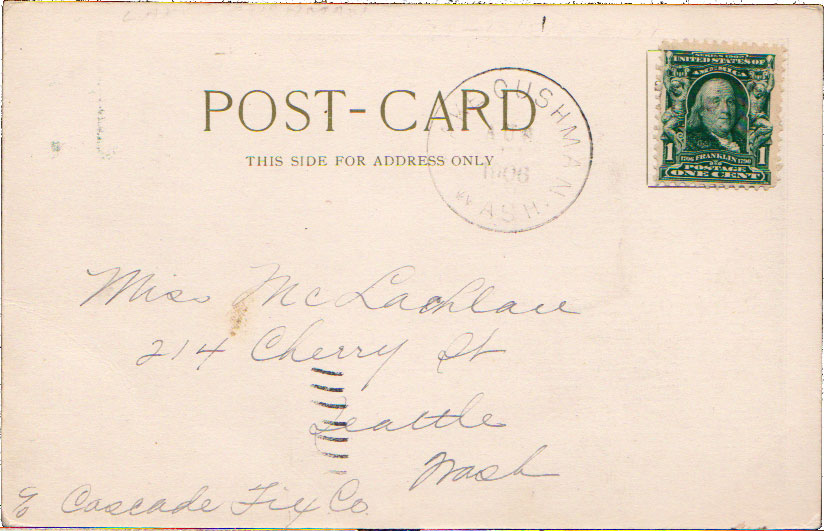 POST-CARD
THIS SIDE FOR ADDRESS ONLY
CUSHMAN
WASH.
1906
SERIES 1902
UNITED STATES OF
AMERICA
1 1
1706 FRANKLIN 1790
POSTAGE
ONE CENT
Miss McLachlan
214 Cherry St
Seattle
Wash
c/o Cascade Fix Co.